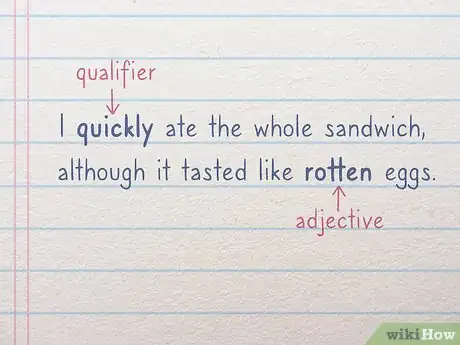 qualifier
I quickly ate the whole sandwich,
although it tasted like rotten eggs.
adjective
wikiHow